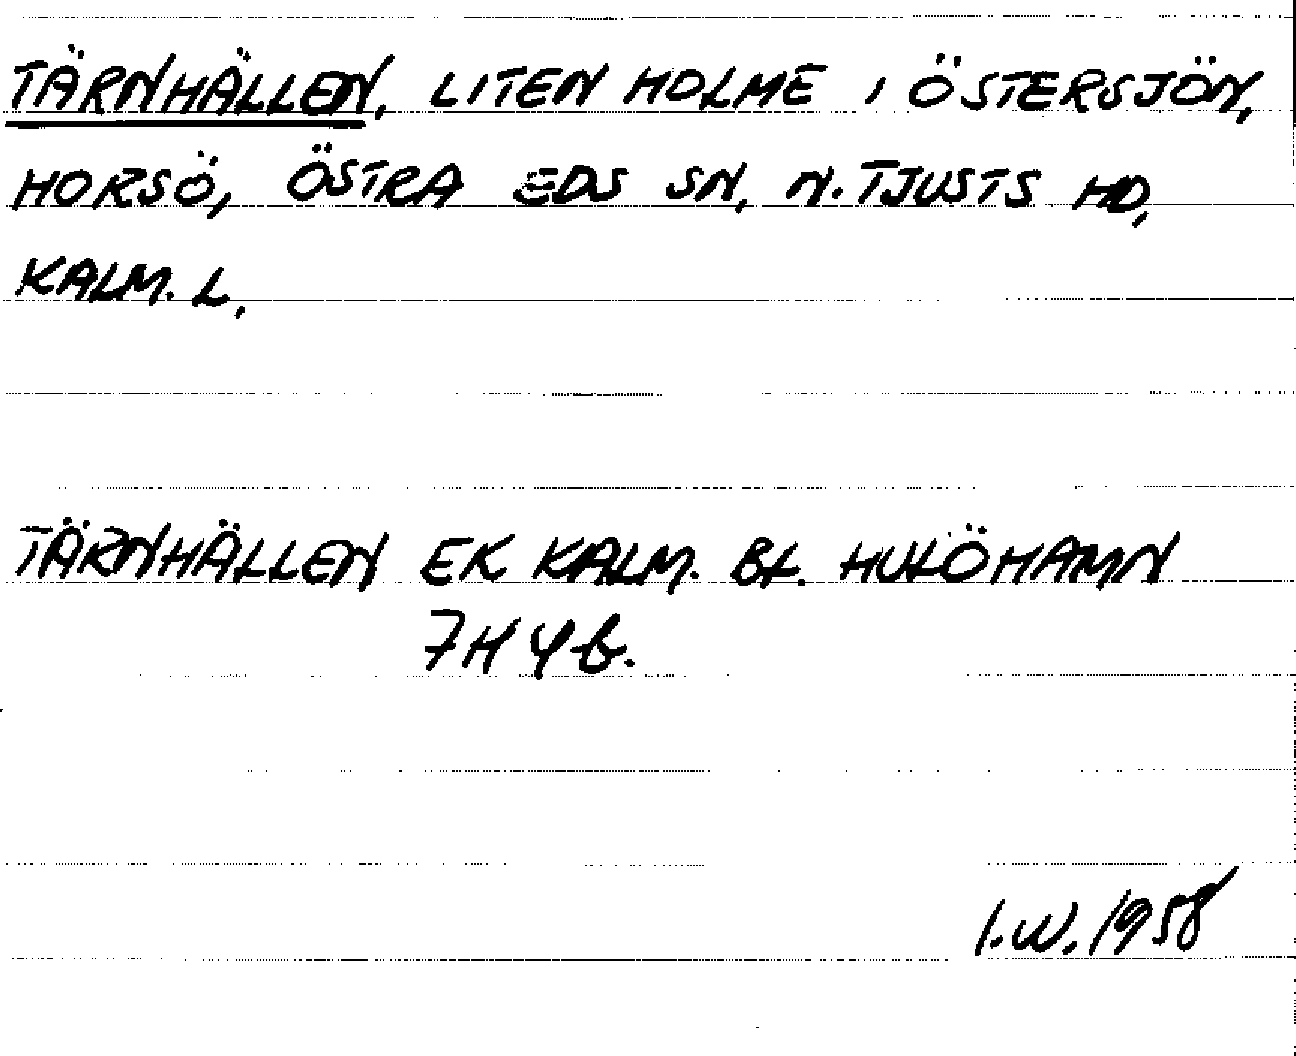 TÄRNHÄLLEN, LITEN HOLME I ÖSTERSJÖN,
HORSÖ, ÖSTRA EDS SN, N. TJUSTS HD,
KALM. L,
TÄRNHÄLLEN EK KALM. BL. HULÖHAMN
7H 4b.
I.W. 1958